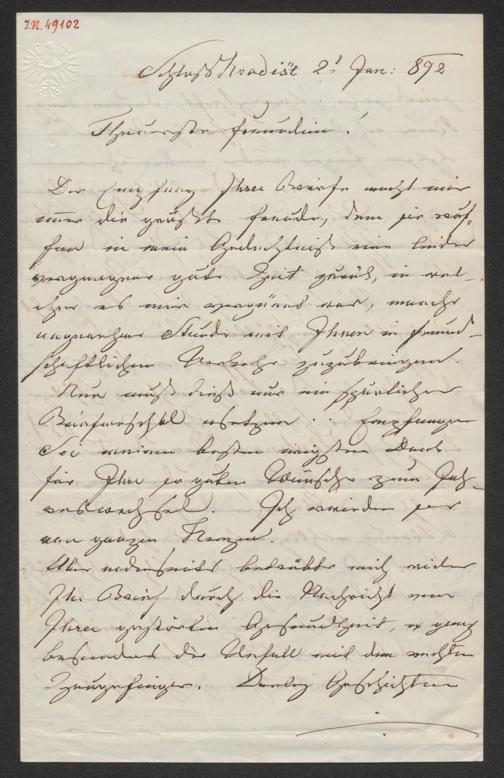 I.N. 49102
Schloss Hradišt 2t Jan: 892
Theuerste Freundin!
Der Empfang Ihrer Briefe macht mir
immer die grösste Freude, denn sie rufen
in mein Gedächtniss eine leider
vergangene gute Zeit zurück, in wel-
cher es mir vergönnt war, manche
angenehme Stunde mit Ihnen in freund-
schaftlichem Verkehr zuzubringen.
Nun muß dieß nur ein spärlicher
Briefwechsel ersetzen. Empfangen
Sie meinen besten innigsten Dank
für Ihre so guten Wünsche zum Jah-
reswechsel. Ich erwiedere sie
von ganzem Herzen.
Aber andererseits betrübte mich wieder
Ihr Brief durch die Nachricht von
Ihrer gestörten Gesundheit, so ganz
besonders der Unfall mit dem rechten
Zeigefinger. Derley Geschichten